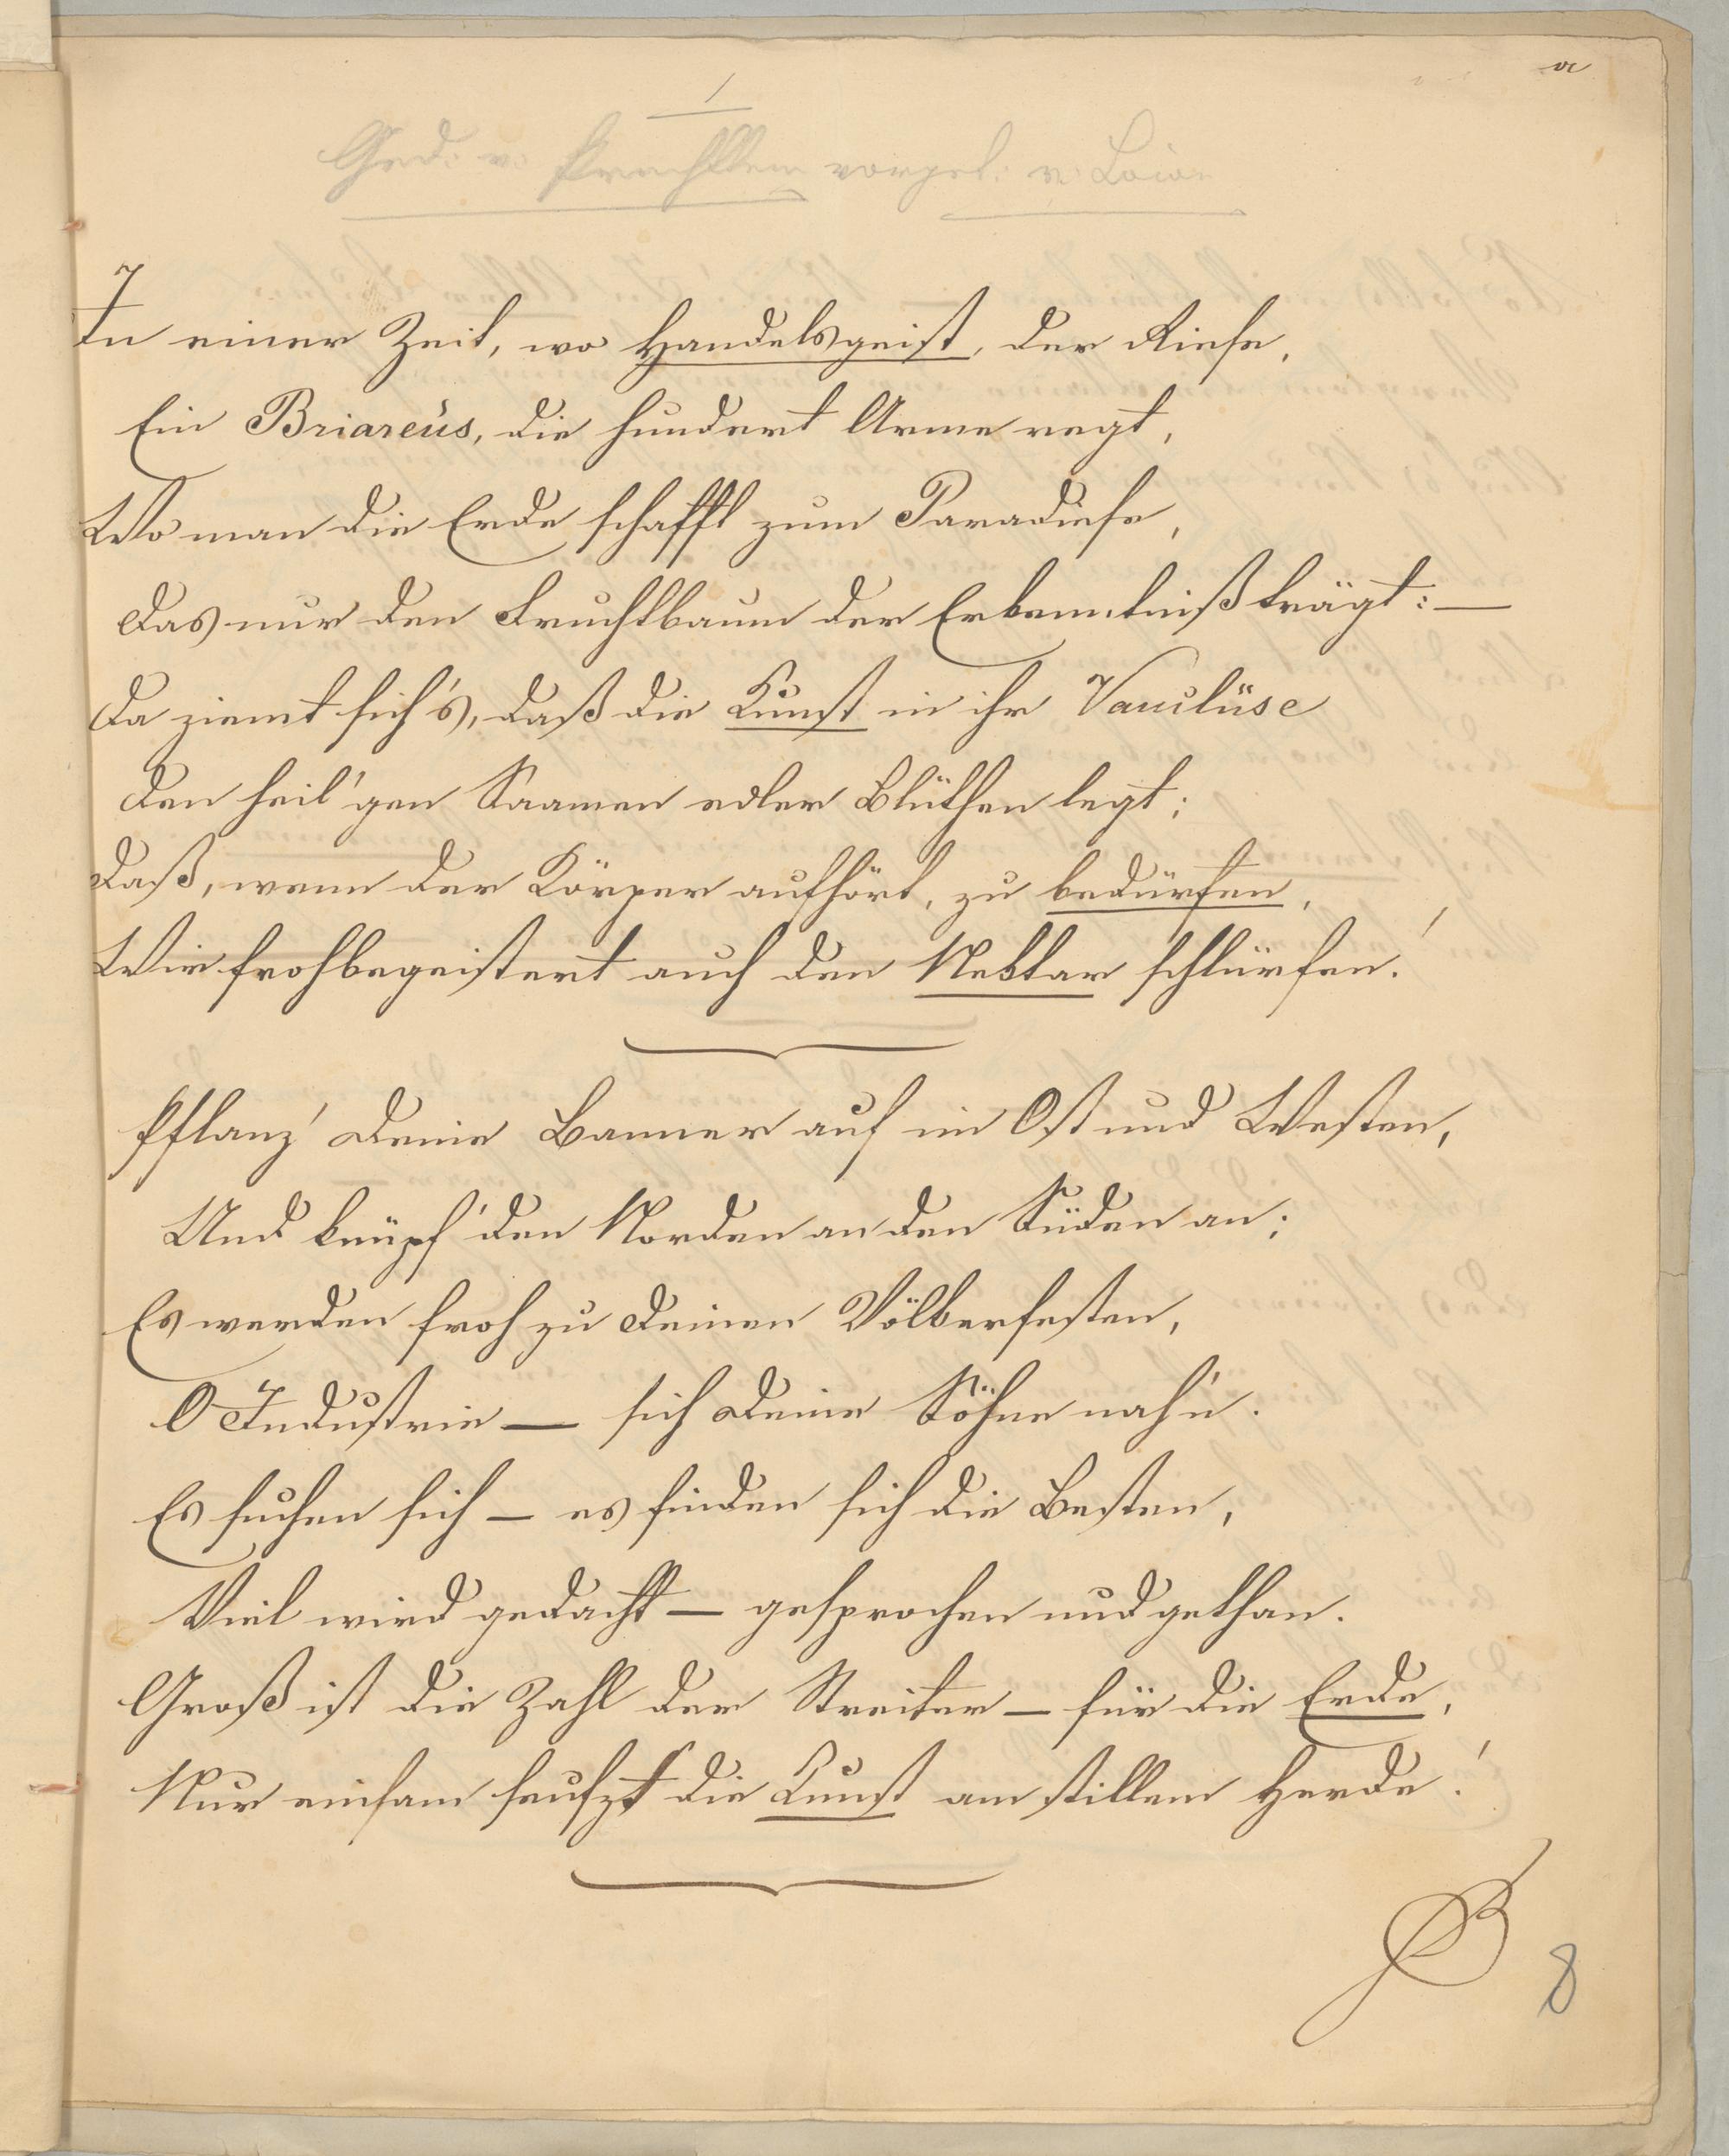 a
1
Ged: v. Prechtlern vorgel: v: Löwe
In einer Zeit, wo Handelsgeist, der Riese,
Ein Briareus, die hundert Arme regt,
Wo man die Erde schafft zum Paradiese,
Das nur den Fruchtbaum der Erkenntniß trägt: —
Da ziemt sich's, daß die Kunst in ihr Vauclüse
Den heil'gen Saamen edler Blüthen legt;
Daß, wenn der Körper aufhört, zu bedürfen,
Wir frohbegeistert auch den Nektar schlürfen!
Pflanz' Deine Banner auf im Ost und Westen,
Und knüpf' den Norden an den Süden an;
Es werden froh zu Deinen Völkerfesten,
O Industrie — sich Deine Söhne nah'n.
Es suchen sich — es finden sich die Besten,
Viel wird gedacht — gesprochen und gethan.
Groß ist die Zahl der Streiter — für die Erde,
Nur einsam seufzt die Kunst am stillem Herde!
8